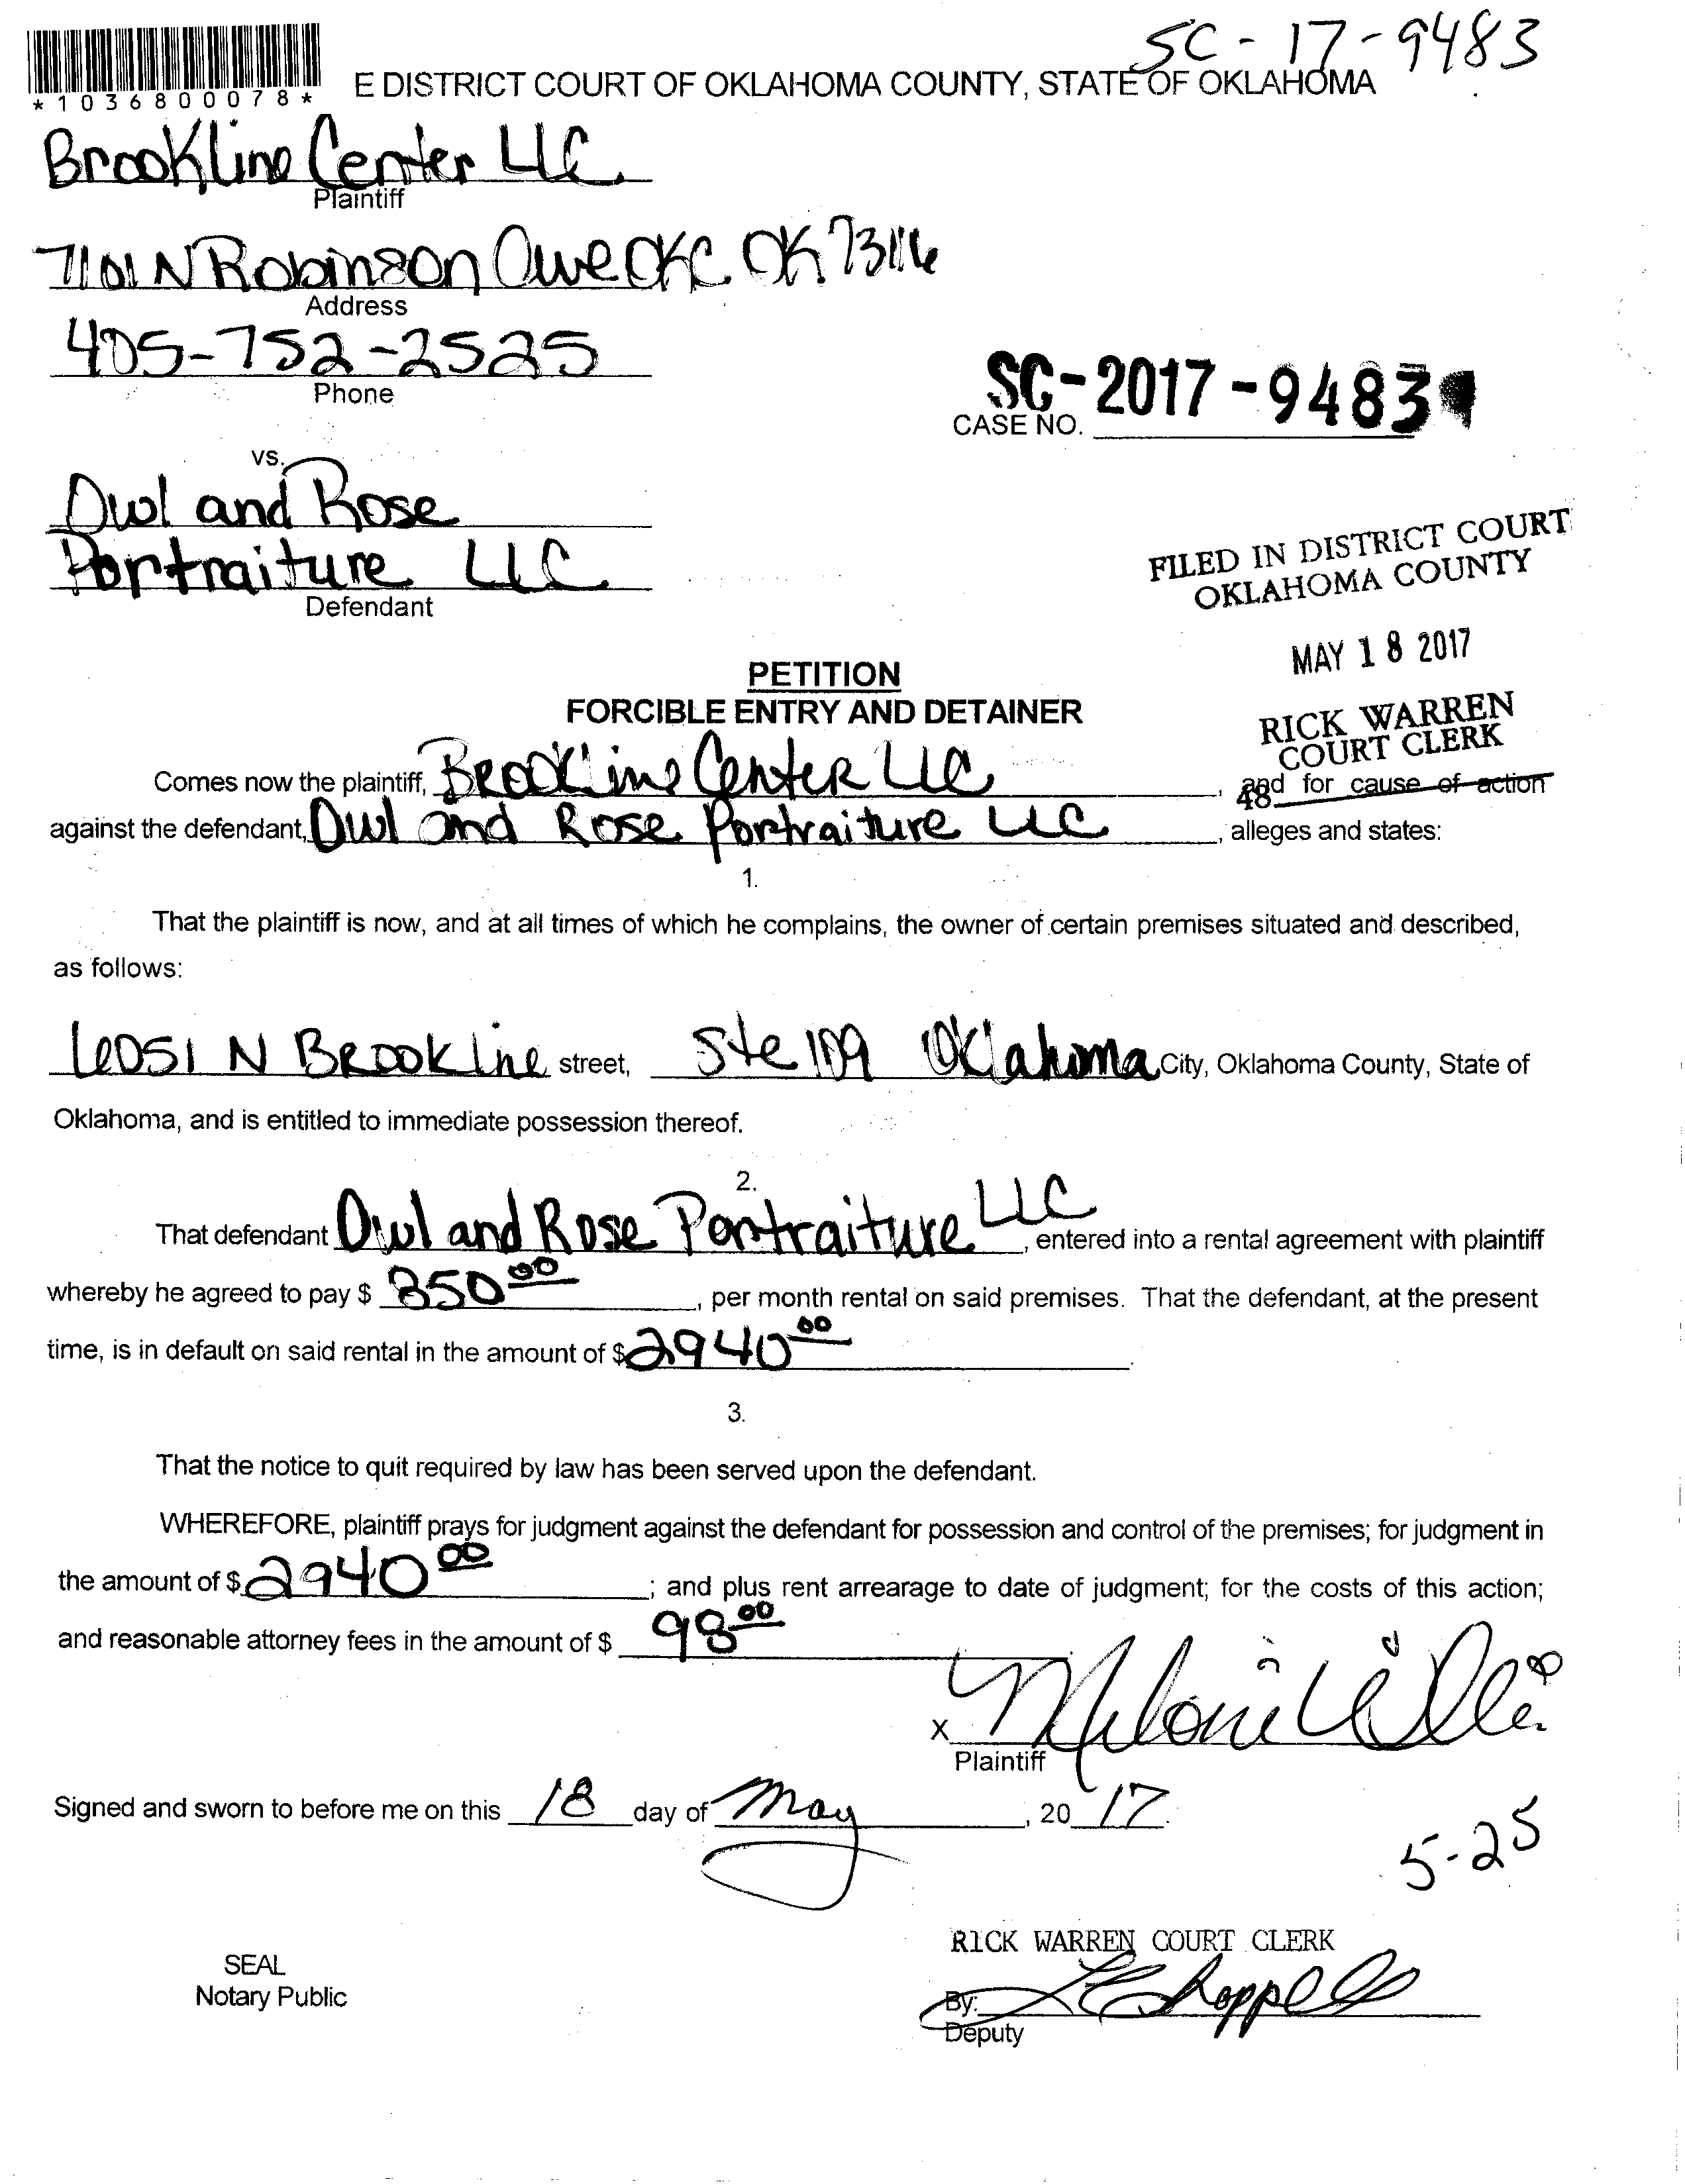 SC-17-9483
*1036800078*
E DISTRICT COURT OF OKLAHOMA COUNTY, STATE OF OKLAHOMA
Brookline Center LLC
Plaintiff
7101 N Robinson Ave OKC OK 73116
Address
405-752-2525
Phone
SC-2017-9483
CASE NO.
vs.
Owl and Rose
Portraiture LLC
Defendant
FILED IN DISTRICT COURT
OKLAHOMA COUNTY
MAY 18 2017
RICK WARREN
COURT CLERK
48
PETITION
FORCIBLE ENTRY AND DETAINER
Comes now the plaintiff, Brookline Center LLC, and for cause of action
against the defendant, Owl and Rose Portraiture LLC, alleges and states:
1.
That the plaintiff is now, and at all times of which he complains, the owner of certain premises situated and described,
as follows:
6051 N Brookline street, Ste 109 Oklahoma City, Oklahoma County, State of
Oklahoma, and is entitled to immediate possession thereof.
2.
That defendant Owl and Rose Portraiture LLC, entered into a rental agreement with plaintiff
whereby he agreed to pay $ 850.00, per month rental on said premises. That the defendant, at the present
time, is in default on said rental in the amount of $2940.00.
3.
That the notice to quit required by law has been served upon the defendant.
WHEREFORE, plaintiff prays for judgment against the defendant for possession and control of the premises; for judgment in
the amount of $2940.00; and plus rent arrearage to date of judgment; for the costs of this action;
and reasonable attorney fees in the amount of $ 98.00
X
Plaintiff
Signed and sworn to before me on this 18 day of May, 2017.
5-25
RICK WARREN COURT CLERK
SEAL
Notary Public
By:
Deputy